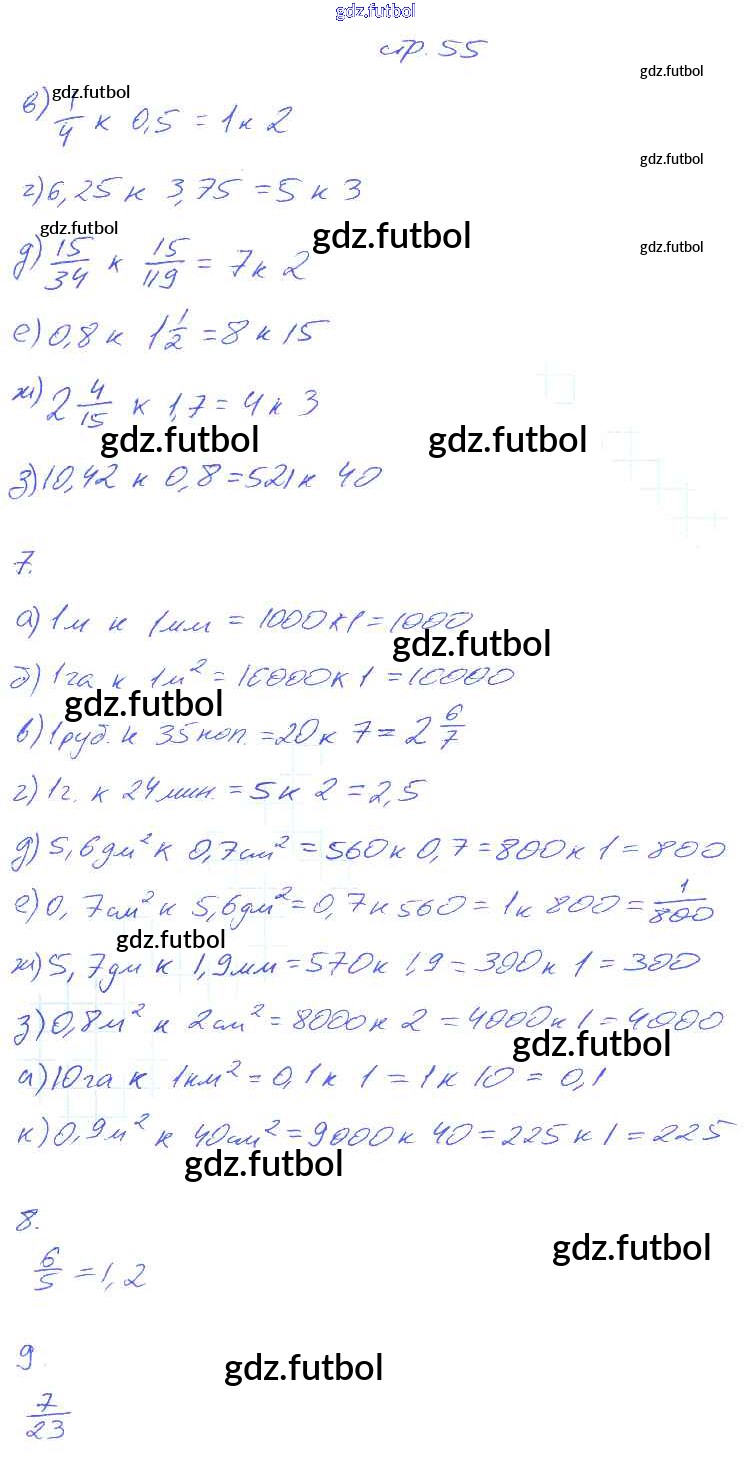 gdz.futbol
стр. 55
gdz.futbol
gdz.futbol
в) 1/4 к 0,5 = 1 к 2
gdz.futbol
г) 6,25 к 3,75 = 5 к 3
gdz.futbol
gdz.futbol
gdz.futbol
д) 15/34 к 15/119 = 7 к 2
е) 0,8 к 1 1/2 = 8 к 15
ж) 2 4/15 к 1,7 = 4 к 3
gdz.futbol
gdz.futbol
з) 10,42 к 0,8 = 521 к 40
7.
а) 1м к 1мм = 1000 к 1 = 1000
gdz.futbol
б) 1га к 1м² = 10000 к 1 = 10000
gdz.futbol
в) 1руб. к 35 коп. = 20 к 7 = 2 6/7
г) 1г. к 24 мин. = 5 к 2 = 2,5
д) 5,6дм² к 0,7см² = 560 к 0,7 = 800 к 1 = 800
е) 0,7см² к 5,6дм² = 0,7 к 560 = 1 к 800 = 1/800
gdz.futbol
ж) 5,7дм к 1,9мм = 570 к 1,9 = 300 к 1 = 300
з) 0,8м² к 2см² = 8000 к 2 = 4000 к 1 = 4000
gdz.futbol
и) 10га к 1км² = 0,1 к 1 = 1 к 10 = 0,1
к) 0,9м² к 40см² = 9000 к 40 = 225 к 1 = 225
gdz.futbol
8.
gdz.futbol
6/5 = 1,2
9.
gdz.futbol
7/23